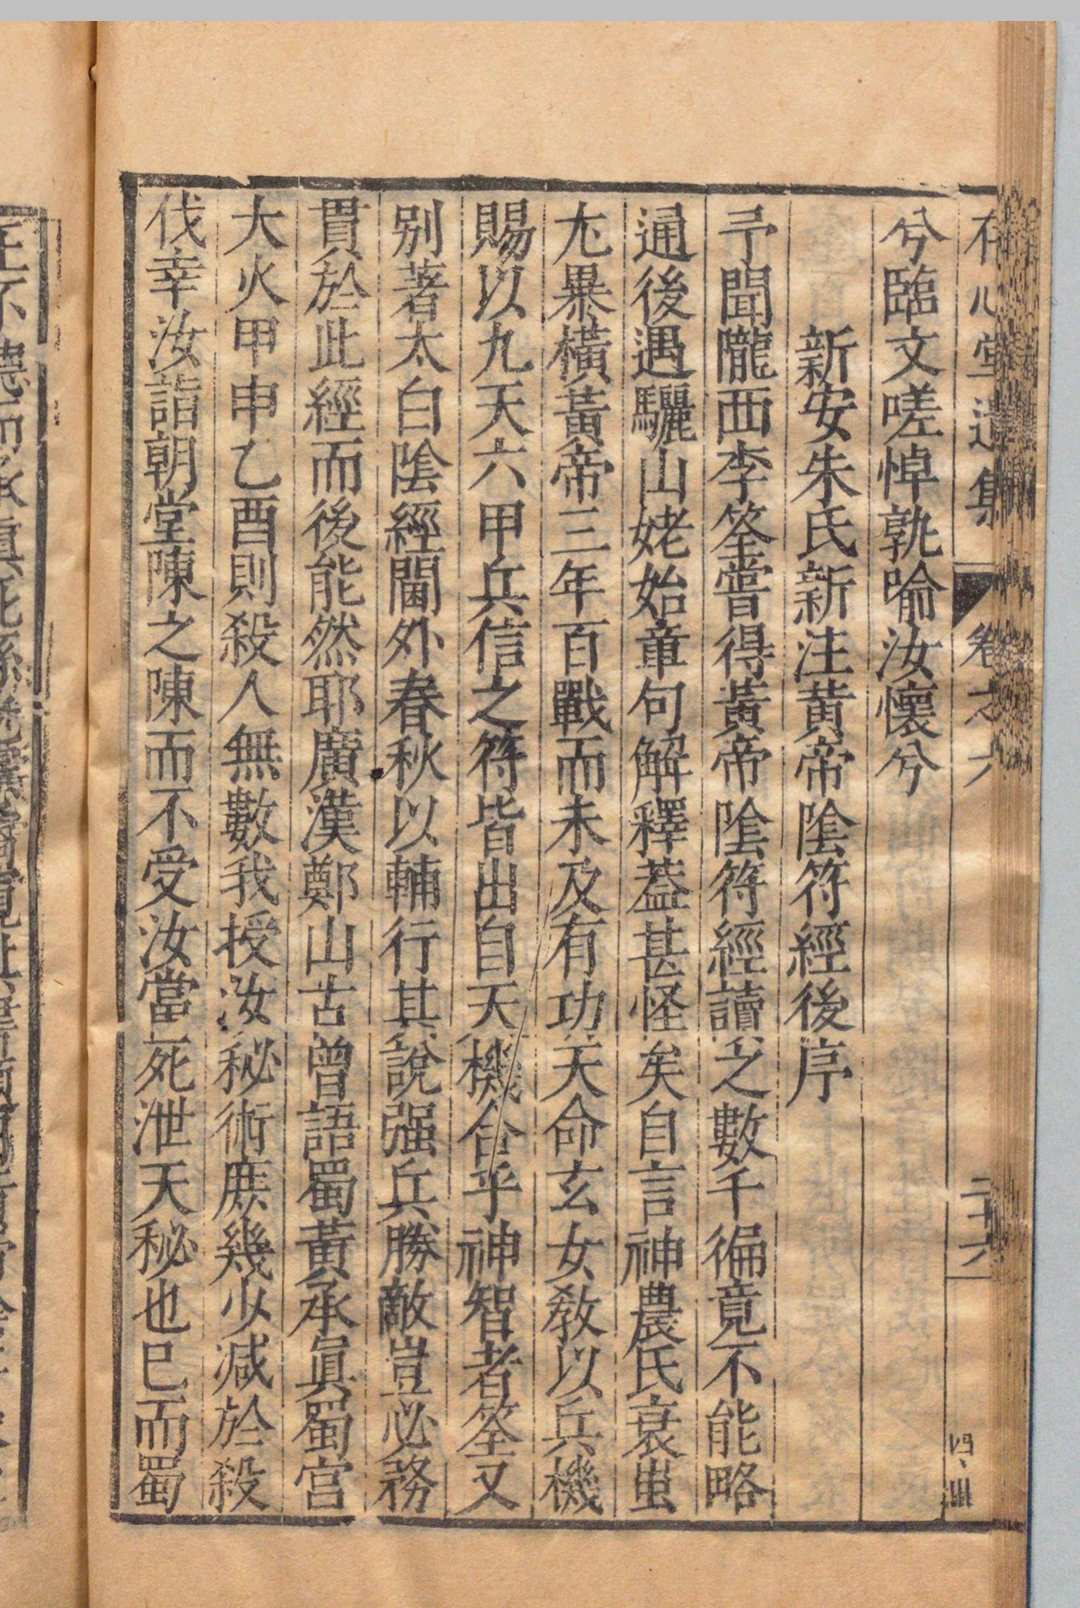 存心堂遺集 卷之六 二十六
兮臨文嗟悼孰喻汝懷兮
新安朱氏新注黃帝陰符經後序
予聞隴西李筌嘗得黃帝陰符經讀之數千徧竟不能略
通後遇驪山姥始章句解釋蓋甚怪矣自言神農氏衰蚩
尤暴橫黃帝三年百戰而未及有功天命玄女教以兵機
賜以九天六甲兵信之符皆出自天機合乎神智者筌又
别著太白陰經閫外春秋以輔行其說强兵勝敵豈必務
貫於此經而後能然耶廣漢鄭山古曾語蜀黃承眞蜀宫
大火甲申乙酉則殺人無數我授汝秘術庻幾少减於殺
伐幸汝詣朝堂陳之陳而不受汝當死泄天秘也巳而蜀